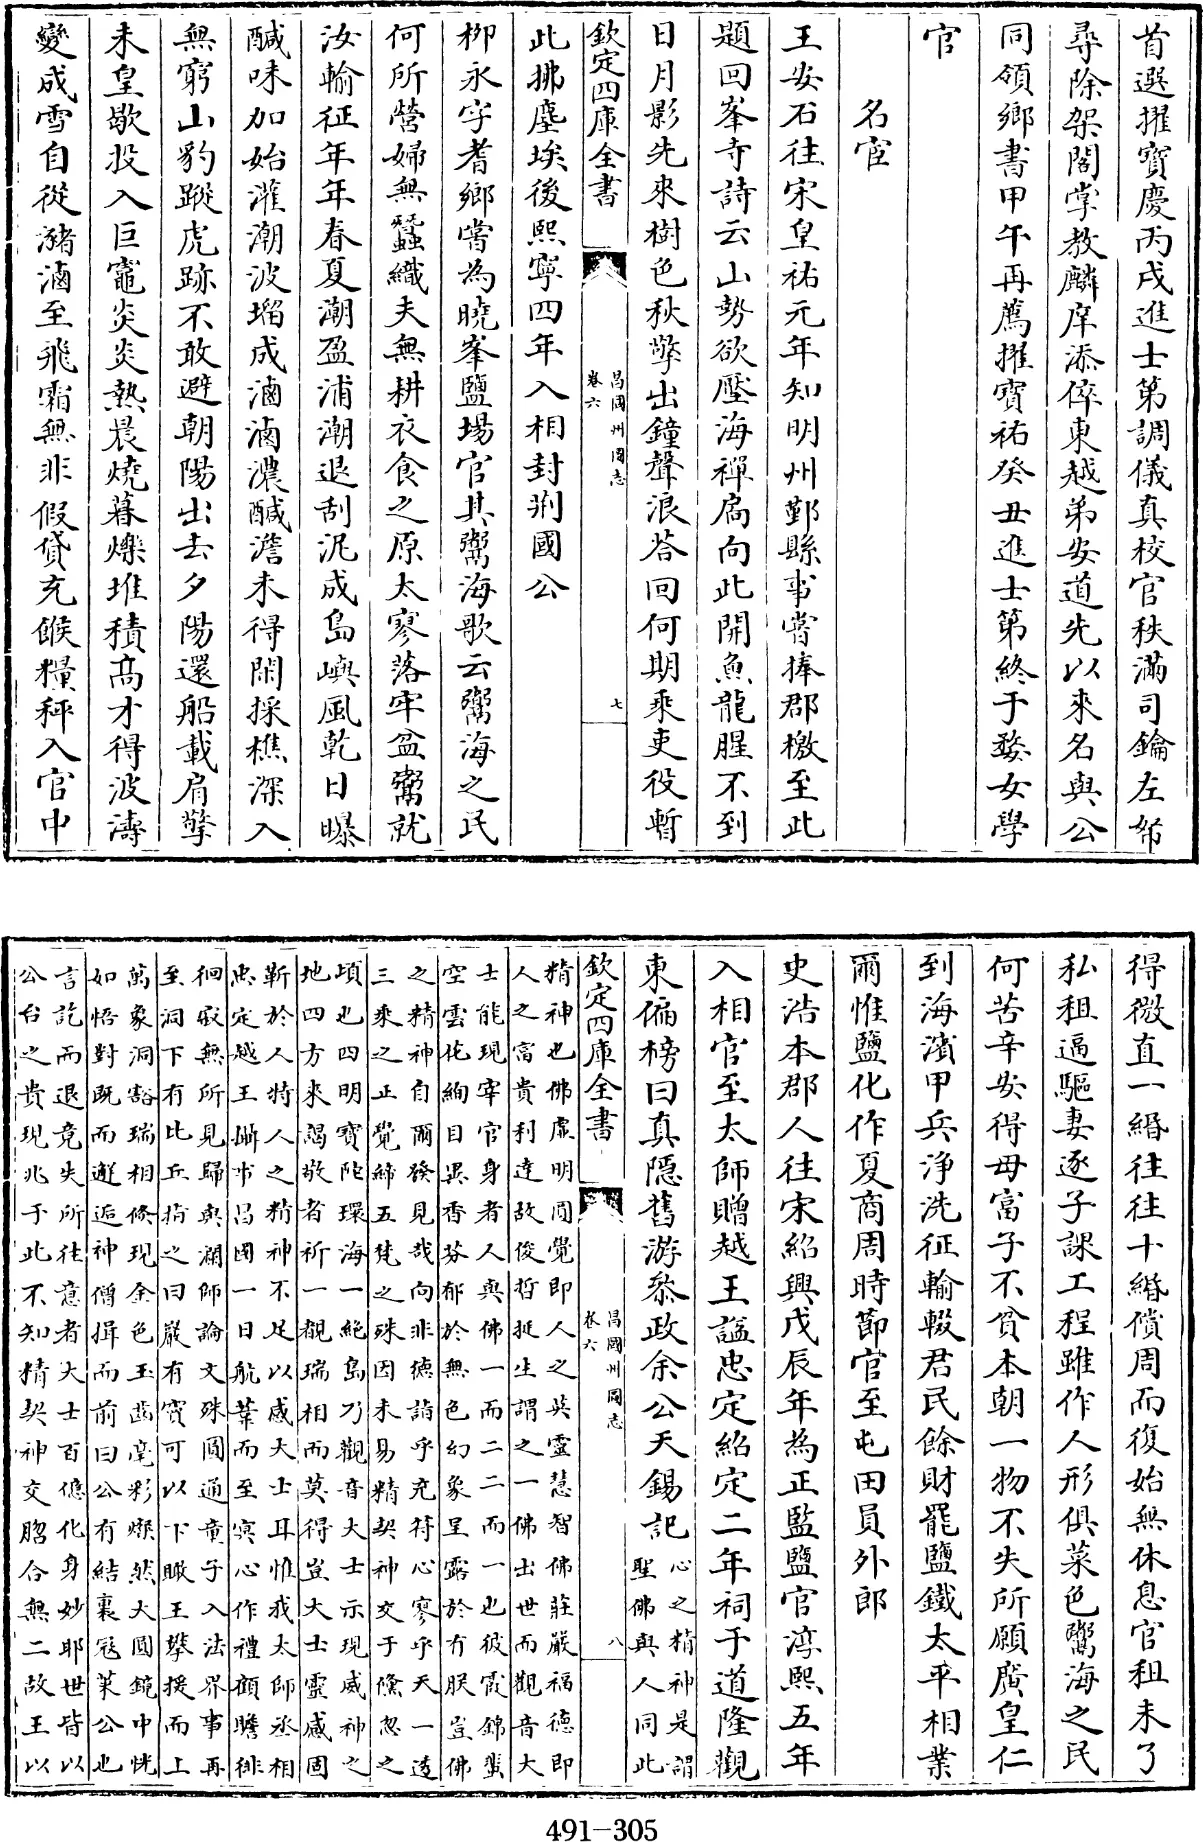 首選擢寶慶丙戌進士第調儀真校官秩滿司鑰左帑
尋除架閣掌教麟庠添倅東越弟安道先以來名與公
同領鄉書甲午再薦擢寶祐癸丑進士第終于婺女學
官
名宦
王安石往宋皇祐元年知明州鄞縣事嘗捧郡檄至此
題回峯寺詩云山勢欲壓海禪扃向此開魚龍腥不到
日月影先來樹色秋擎出鐘聲浪荅回何期乘吏役暫
欽定四庫全書
昌國州圖志
卷六
七
此拂塵埃後熙寧四年入相封荆國公
栁永字耆鄉嘗為曉峯鹽場官其鬻海歌云鬻海之民
何所營婦無蠶織夫無耕衣食之原太寥落牢盆鬻就
汝輸征年年春夏潮盈浦潮退刮泥成島嶼風乾日曝
醎味加始灌潮波塯成滷滷濃醎澹未得閑採樵深入
無窮山豹蹤虎跡不敢避朝陽出去夕陽還船載肩擎
未皇歇投入巨竈炎炎熱晨燒暮爍堆積高才得波濤
變成雪自從瀦滷至飛霜無非假貸充餱糧秤入官中
得微直一緡往往十緡償周而復始無休息官租未了
私租逼驅妻逐子課工程雖作人形俱菜色鬻海之民
何苦辛安得母富子不貧本朝一物不失所願廣皇仁
到海濱甲兵淨洗征輸輟君民餘財罷鹽鐵太平相業
爾惟鹽化作夏商周時節官至屯田員外郎
史浩本郡人往宋紹興戊辰年為正監鹽官淳熙五年
入相官至太師贈越王諡忠定紹定二年祠于道隆觀
東偏榜曰真隱舊游叅政余公天錫記
心之精神是謂
聖佛與人同此
欽定四庫全書
昌國州圖志
卷六
八
精神也佛虛明圓覺即人之英靈慧智佛莊嚴福德即
人之富貴利達故俊哲挺生謂之一佛出世而觀音大
士能現宰官身者人與佛一而二二而一也彼霞錦蜚
空雲花絢目異香芬郁於無色幻象呈露於有朕豈佛
之精神自爾發見哉向非德詣乎充符心寥乎天一造
三乘之正覺締五梵之殊因未易精契神交于儵忽之
頃也四明寶陀環海一絶島乃觀音大士示現威神之
地四方來謁敬者祈一覩瑞相而莫得豈大士靈感固
靳於人特人之精神不足以感大士耳惟我太師丞相
忠定越王揓市昌國一日航葦而至㝠心作禮顧瞻徘
徊寂無所見歸與瀾師論文殊圓通童子入法界事再
至洞下有比丘指之曰巖有竇可以下瞰王攀援而上
萬象洞豁瑞相倏現金色玉齒毫彩爍然大圓鏡中恍
如悟對既而邂逅神僧揖而前曰公有結裹寇萊公也
言訖而退竟失所往意者大士百億化身妙耶世皆以
公台之貴現兆于此不知精契神交脗合無二故王以
491-305